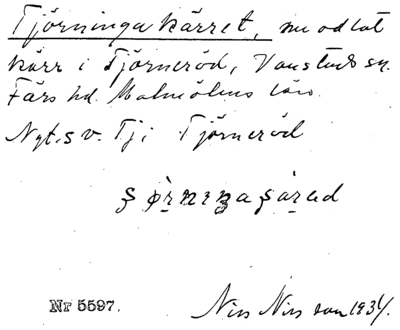 Tjörningakärret, nu odlat
kärr i Tjörneröd, Vanstads sn.
Färs hd. Malmöhus län.
Nyt. s v. Tj. i Tjörneröd
Nr 5597. Nils Nilsson 1934.